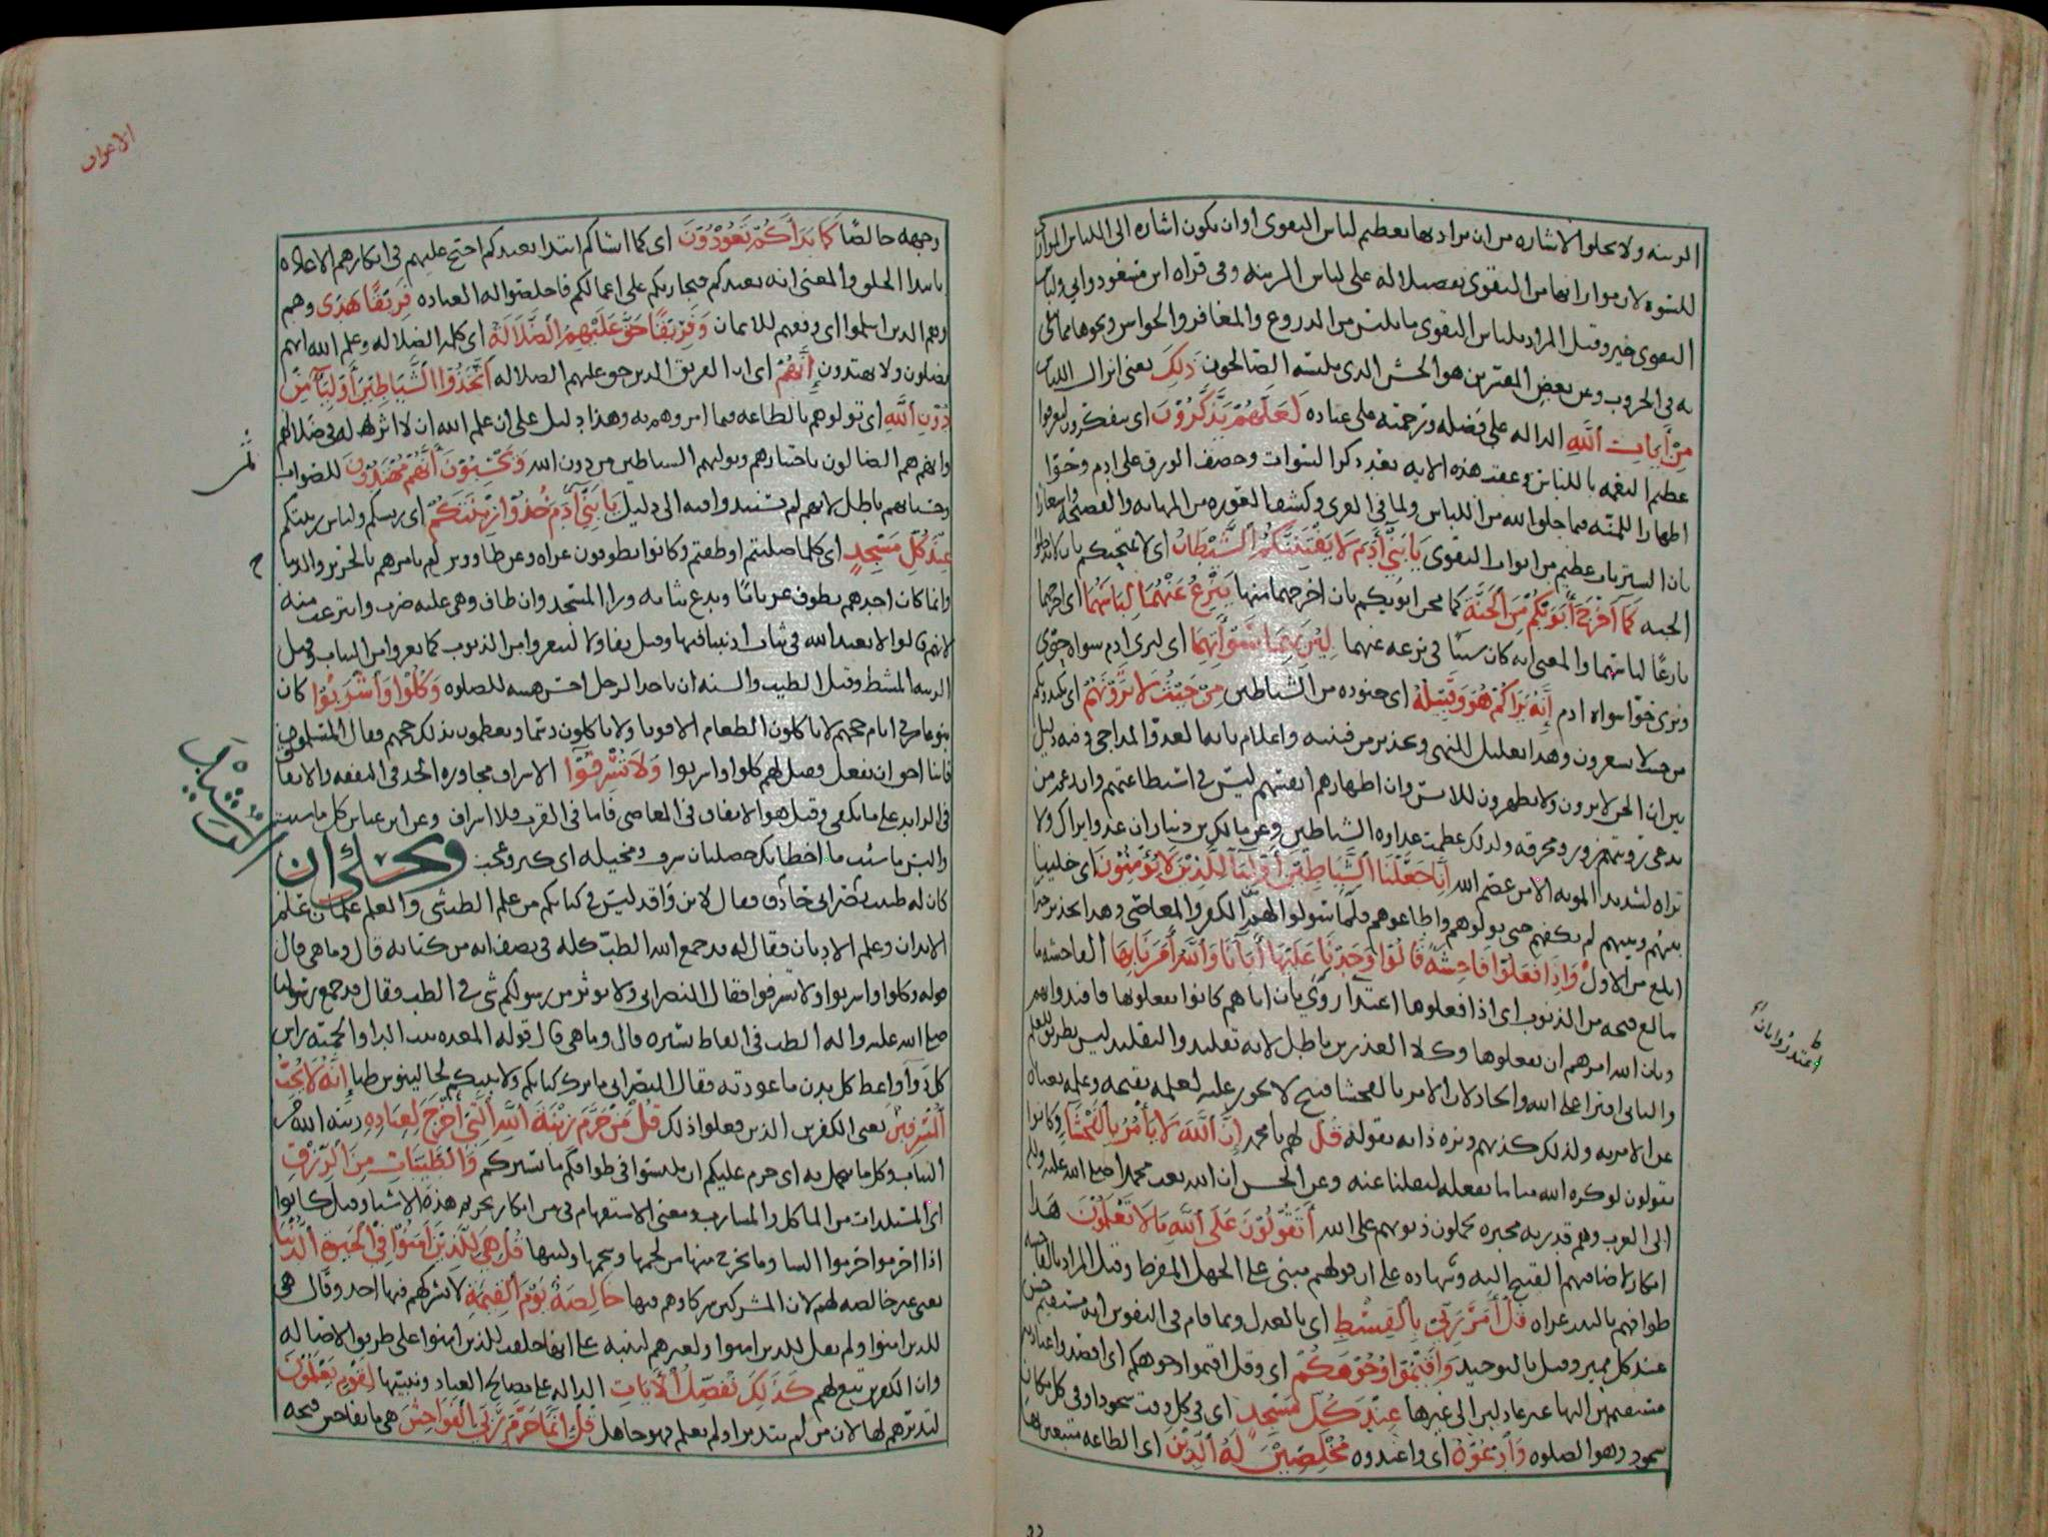 الزينة ولا تخلوا الاشارة من ان يراد بها تعظيم لباس التقوى او ان تكون اشارة الى اللباس الموارى
للسوة لان مواراتها من التقوى تفضيلا له على لباس الزينة وفى قراة ابن مسعود وابي ولباس
التقوى خير وقيل المراد بلباس التقوى ما يلبس من الدروع والمغافر والجواشن ونحوها مما يتقى
به فى الحروب وعن بعض المفسرين هو الخشن الذى يلبسه الصالحون ذَلِكَ يعنى انزال اللباس
مِنْ أَيَاتِ ٱللَّهِ الدالة على فضله ورحمته على عباده لَعَلَّهُمْ يَذَّكَّرُوْنَ اى يتفكرون ليعرفوا
عظيم النعمة باللباس وعقب هذه الاية بعد ذكر السوات وخصف الورق على ادم وحوا
اظهارا للمنة فيما خلق الله من اللباس ولما فى العرى وكشف العورة من المهانة والفضيحة واشعارا
بان الستر باب عظيم من ابواب التقوى يَا بَنِيْ أَدَمَ لَا يَفْتِنَنَّكُمُ ٱلشَّيْطَانُ اى لا يمتحنكم بان لا تدخلوا
الجنة كَمَا أَخْرَجَ أَبَوَيْكُمْ مِنَ ٱلْجَنَّةِ كما محن ابويكم بان اخرجهما منها يَنْزِعُ عَنْهُمَا لِبَاسَهُمَا اى اخرجهما
نازعًا لباسهما والمعنى انه كان سببًا فى نزعه عنهما لِيُرِيَهُمَا سَوْأَتِهِمَا اى ليرى ادم سواة حوى
وترى حوا سواة ادم إِنَّهُ يَرَاكُمْ هُوَ وَقَبِيْلُهُ اى جنوده من الشياطين مِنْ حَيْثُ لَا تَرَوْنَهُمْ اى يكيدونكم
من حيث لا تشعرون وهذا تعليل للنهى وتحذير من فتنته واعلام بانه العدو المداجى وفيه دليل
بين ان الجن لا يرون ولا يظهرون للانس وان اظهارهم انفسهم ليس فى استطاعتهم وان زعم من
يدعى رويتهم زور ومخرقة ولذلك عظمت عداوة الشياطين وعن مالك بن دينار ان عدوا يراك ولا
تراه لشديد المونة الا من عصم الله إِنَّا جَعَلْنَا ٱلشَّيَاطِيْنَ أَوْلِيَآءَ لِلَّذِيْنَ لَا يُؤْمِنُوْنَ اى خلينا
بينهم وبينهم لم نكفهم حتى تولوهم واطاعوهم فيما سولوا لهم من الكفر والمعاصى وهذا تحذير اخر
ابلغ من الاول وَإِذَا فَعَلُوْا فَاحِشَةً قَالُوْا وَجَدْنَا عَلَيْهَا أَبَآءَنَا وَٱللَّهُ أَمَرَنَا بِهَا الفاحشة ما
تبالغ قبحه من الذنوب اى اذا فعلوها اعتذروا بان اباهم كانوا يفعلونها فاقتدوا بهم
وبان الله امرهم ان يفعلوها وكلا العذرين باطل لانه تقليد والتقليد ليس بطريق للعلم
والثانى افترا على الله والحاد لان الامر بالفحشا قبيح لا يجوز عليه لعلمه بقبحه وعلمه بغناه
عن الامر به ولذلك كذبهم ونزه ذاته بقوله قُلْ لهم يا محمد إِنَّ ٱللَّهَ لَا يَأْمُرُ بِٱلْفَحْشَآءِ وكانوا
يقولون لو كره الله منا ما نفعله لنقلنا عنه وعن الحسن ان الله بعث محمدا صلى الله عليه واله
الى العرب وهم قدرية مجبرة يحملون ذنوبهم على الله أَتَقُوْلُوْنَ عَلَى ٱللَّهِ مَا لَا تَعْلَمُوْنَ هذا
انكار لاضافتهم القبيح اليه وشهادة على ان قولهم مبنى على الجهل المفرط وقيل المراد بالفاحشة
طوافهم بالبيت عراة قُلْ أَمَرَ رَبِّيْ بِٱلْقِسْطِ اى بالعدل وبما قام فى النفوس انه مستقيم حسن
عند كل مميز وقيل بالتوحيد وَأَقِيْمُوْا وُجُوْهَكُمْ اى وقل اقيموا وجوهكم اى اقصدوا عبادته
مستقيمين اليها غير عادلين الى غيرها عِنْدَ كُلِّ مَسْجِدٍ اى فى كل وقت سجود او فى كل مكان
سجود وهو الصلوة وَٱدْعُوْهُ اى واعبدوه مُخْلِصِيْنَ لَهُ ٱلدِّيْنَ اى الطاعة مبتغين بها
اعتذروا بان
الاعراف
وجهه خالصًا كَمَا بَدَأَكُمْ تَعُوْدُوْنَ اى كما انشاكم ابتدا يعيدكم احتج عليهم فى انكارهم الاعادة
بابتدا الخلق والمعنى انه يعيدكم فيجازيكم على اعمالكم فاخلصوا له العبادة فَرِيْقًا هَدَى وهم
وهم الذين اسلموا اى وفقهم للايمان وَفَرِيْقًا حَقَّ عَلَيْهِمُ ٱلضَّلَالَةُ اى كلمة الضلالة وعلم الله انهم
يضلون ولا يهتدون إِنَّهُمُ اى ان الفريق الذين حق عليهم الضلالة ٱتَّخَذُوْا ٱلشَّيَاطِيْنَ أَوْلِيَآءَ مِنْ
دُوْنِ ٱللَّهِ اى تولوهم بالطاعة فيما امروهم به وهذا دليل على ان علم الله ان لا اثر له فى ضلالهم
وانهم هم الضالون باختيارهم وتوليهم الشياطين من دون الله وَيَحْسَبُوْنَ أَنَّهُمْ مُهْتَدُوْنَ للصواب
وحسبانهم باطل لانهم لم يستندوا فيه الى دليل يَا بَنِيْ أَدَمَ خُذُوْا زِيْنَتَكُمْ اى ريشكم ولباس زينتكم
عِنْدَ كُلِّ مَسْجِدٍ اى كلما صليتم او طفتم وكانوا يطوفون عراة وعن طاووس لم يامرهم بالحرير والديباج
وانما كان احدهم يطوف عريانًا ويدع ثيابه ورا المسجد وان طاف وهى عليه ضرب وانتزعت منه
لانهم قالوا لا نعبد الله فى ثياب اذنبنا فيها وقيل تفاولا ليتعروا من الذنوب كما تعروا من الثياب وقيل
الزينة المشط وقيل الطيب والسنة ان ياخذ الرجل احسن هيئته للصلوة وَكُلُوْا وَٱشْرَبُوْا كان
بنو عامر فى ايام حجهم لا ياكلون الطعام الا قوتا ولا ياكلون دسما ويعظمون بذلك حجهم فقال المسلمون
فانا احق ان نفعل فقيل لهم كلوا واشربوا وَلَا تُسْرِفُوْا الاسراف مجاوزة الحد فى النفقة والانفاق
فى الزايد على ما يكفى وقيل هو الانفاق فى المعاصى فاما فى القرب فلا اسراف وعن ابن عباس كل ما شيت
والبس ما شيت ما اخطاتك خصلتان سرف ومخيلة اى كبر وعجب ويحكى ان الرشيد
كان له طبيب نصرانى حاذق فقال لابن واقد ليس فى كتابكم من علم الطب شى والعلم علمان علم
الابدان وعلم الاديان فقال له قد جمع الله الطب كله فى نصف اية من كتابه قال وما هى قال
قوله وكلوا واشربوا ولا تسرفوا فقال النصرانى ولا يوثر من رسولكم شى فى الطب فقال قد جمع رسولنا
صلى الله عليه واله الطب فى الفاظ يسيرة قال وما هى قال قوله المعدة بيت الدا والحمية راس
كل دوا واعط كل بدن ما عودته فقال النصرانى ما ترك كتابكم ولا نبيكم لجالينوس طبا إِنَّهُ لَا يُحِبُّ
ٱلْمُسْرِفِيْنَ يعنى الكفرين الذين فعلوا ذلك قُلْ مَنْ حَرَّمَ زِيْنَةَ ٱللَّهِ ٱلَّتِيْ أَخْرَجَ لِعِبَادِهِ زينة الله من
الثياب وكل ما يتجمل به اى حرم عليكم ان تلبسوا فى طوافكم ما يستركم وَٱلطَّيِّبَاتِ مِنَ ٱلرِّزْقِ
اى المستلذات من الماكل والمشارب ومعنى الاستفهام فى من انكار تحريم هذه الاشيا وقيل كانوا
اذا احرموا حرموا الشا وما يخرج منها من لحمها وشحمها ولبنها قُلْ هِيَ لِلَّذِيْنَ أَمَنُوْا فِيْ ٱلْحَيٰوةِ ٱلدُّنْيَا
يعنى غير خالصة لهم لان المشركين شركاوهم فيها خَالِصَةً يَوْمَ ٱلْقِيٰمَةِ لا يشركهم فيها احد وقال هى
للذين امنوا ولم يقل للذين امنوا ولغيرهم لينبه على انها خلقت للذين امنوا على طريق الاصالة
وان الكفرين تبع لهم كَذَلِكَ نُفَصِّلُ ٱلْأَيَاتِ الدالة على مصالح العباد ونبينها لِقَوْمٍ يَعْلَمُوْنَ
لتدبرهم لها لان من لم يتدبر او لم يعلم فهو جاهل قُلْ إِنَّمَا حَرَّمَ رَبِّيَ ٱلْفَوَاحِشَ هى ما تفاحش قبحه